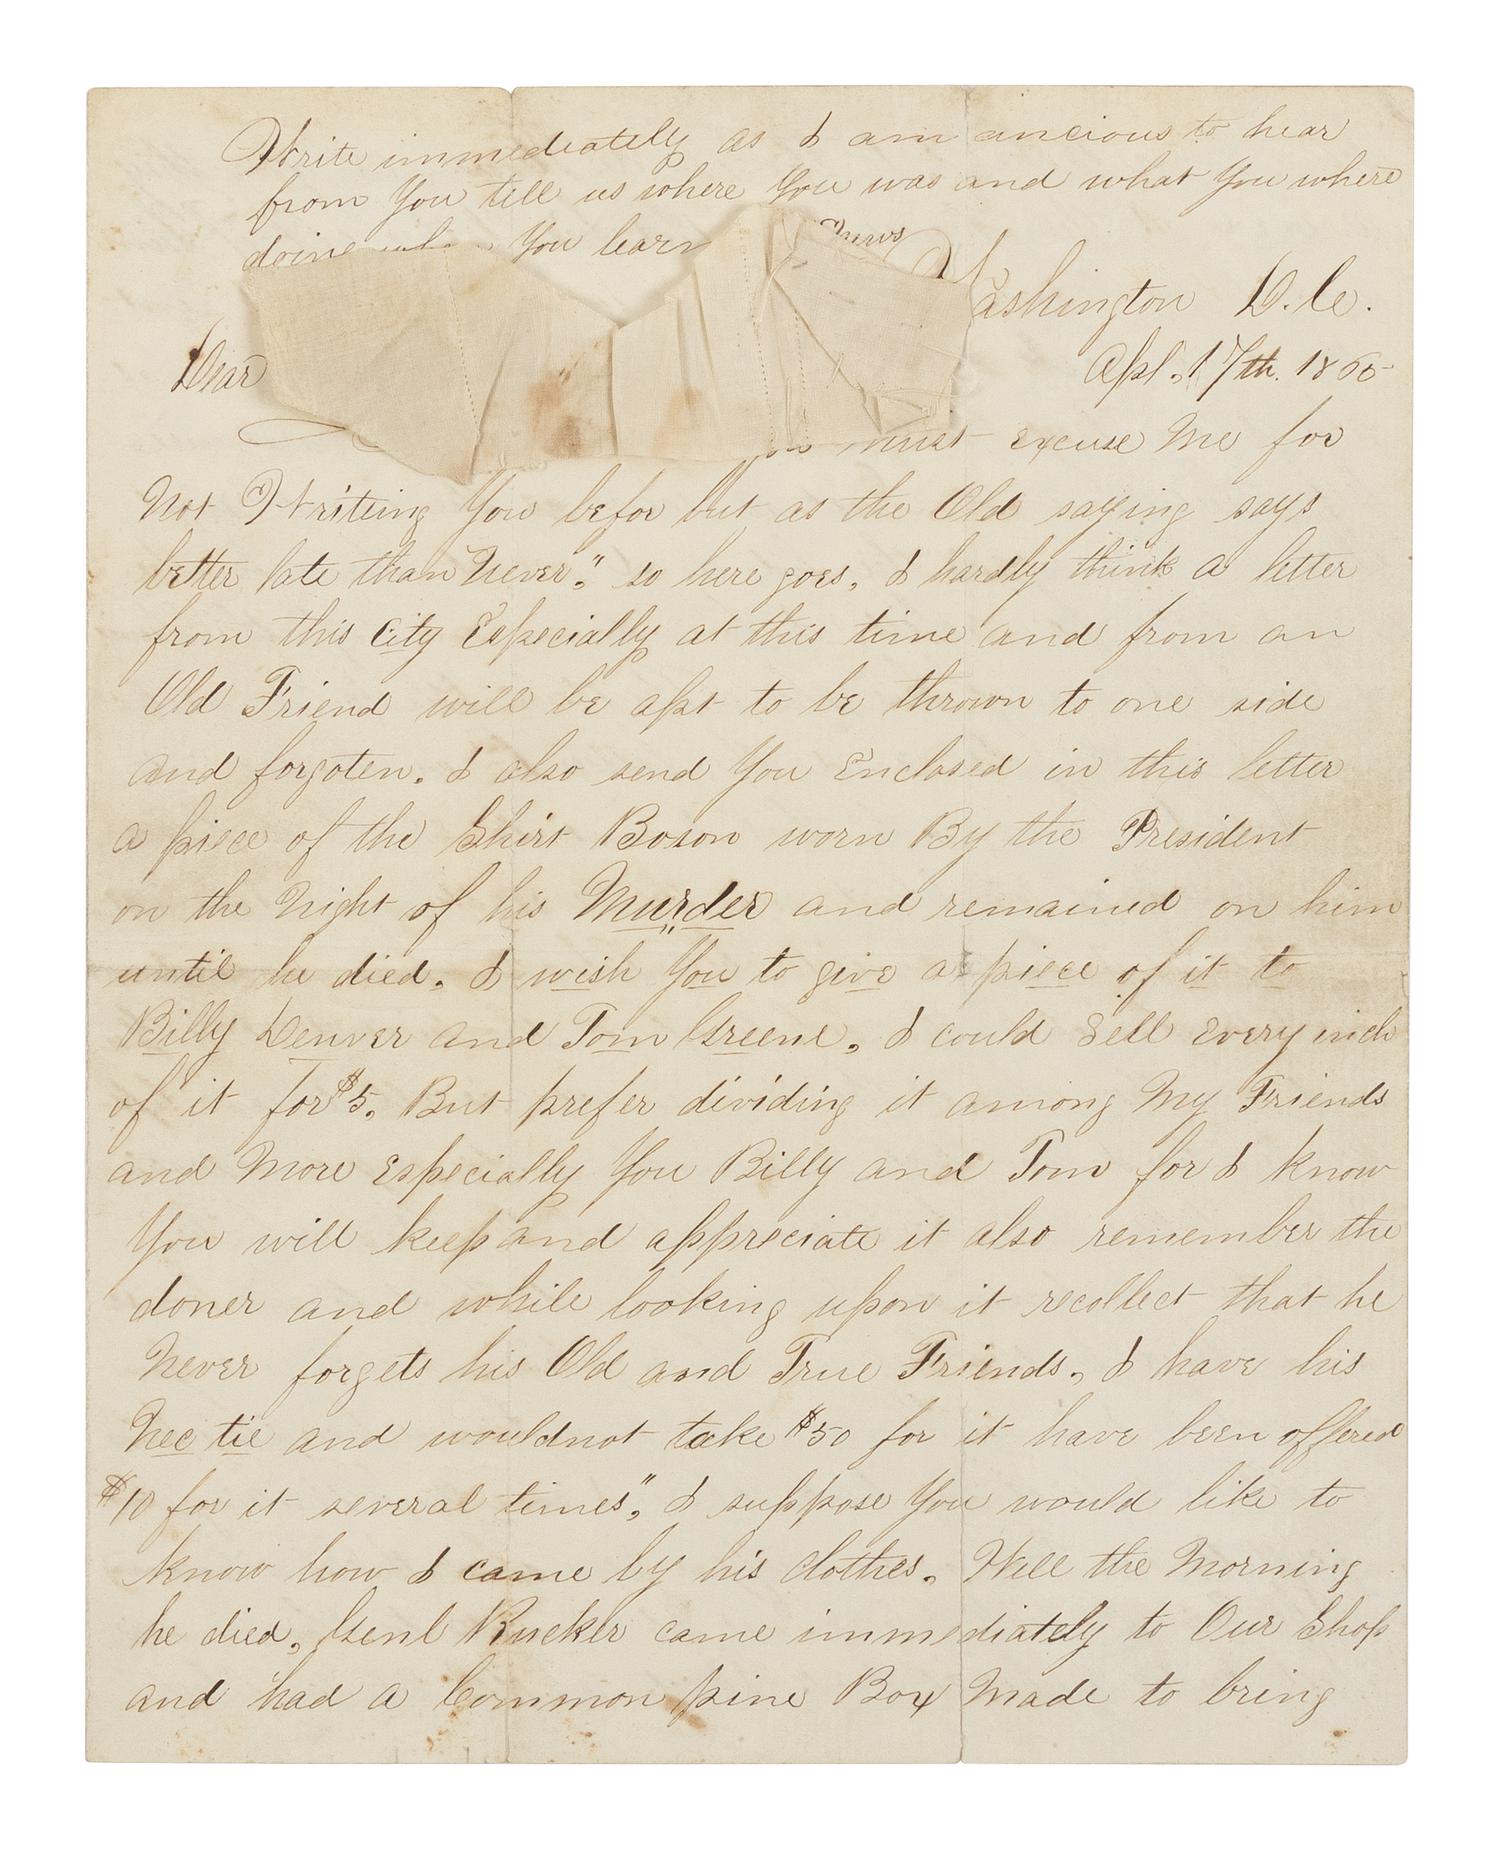 Write immediately as I am ancious to hear
from You tell us where You was and what You where
doing You learn
news
Washington D.C.
Apl. 17th. 1865
Dear
must excuse Me for
Not Writing You befor but as the Old saying says
better late than Never." so here goes. I hardly think a letter
from this City Especially at this time and from an
Old Friend will be apt to be thrown to one side
and forgoten. I also send You Enclosed in this letter
a piece of the Shirt Boson worn By the President
on the Night of his Murder and remained on him
until he died. I wish You to give a piece of it to
Billy Denver and Tom Greene. I could Sell Every inch
of it for $5. But prefer dividing it among My Friends
and More Especially You Billy and Tom for I know
You will keep and appreciate it also remember the
doner and while looking upon it recollect that he
Never forgets his Old and True Friends. I have his
Nec tie and wouldnot take $50 for it have been offered
$10 for it several times". I suppose You would like to
know how I came by his clothes. Well the Morning
he died, Genl Rucker came immediately to Our Shop
and had a Common pine Box Made to bring